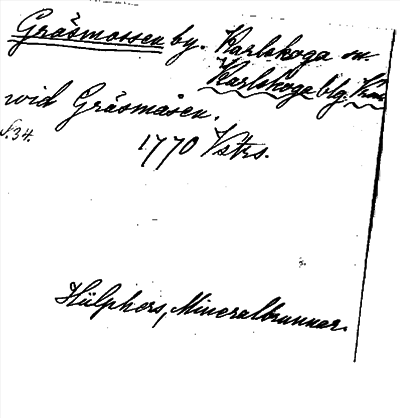 Gräsmossen by. Karlskoga sn.
Karlskoga blg.
wid Gräsmåsen.
S. 34.
1770 Vstrs.
Hülphers, Mineralbrunnar.